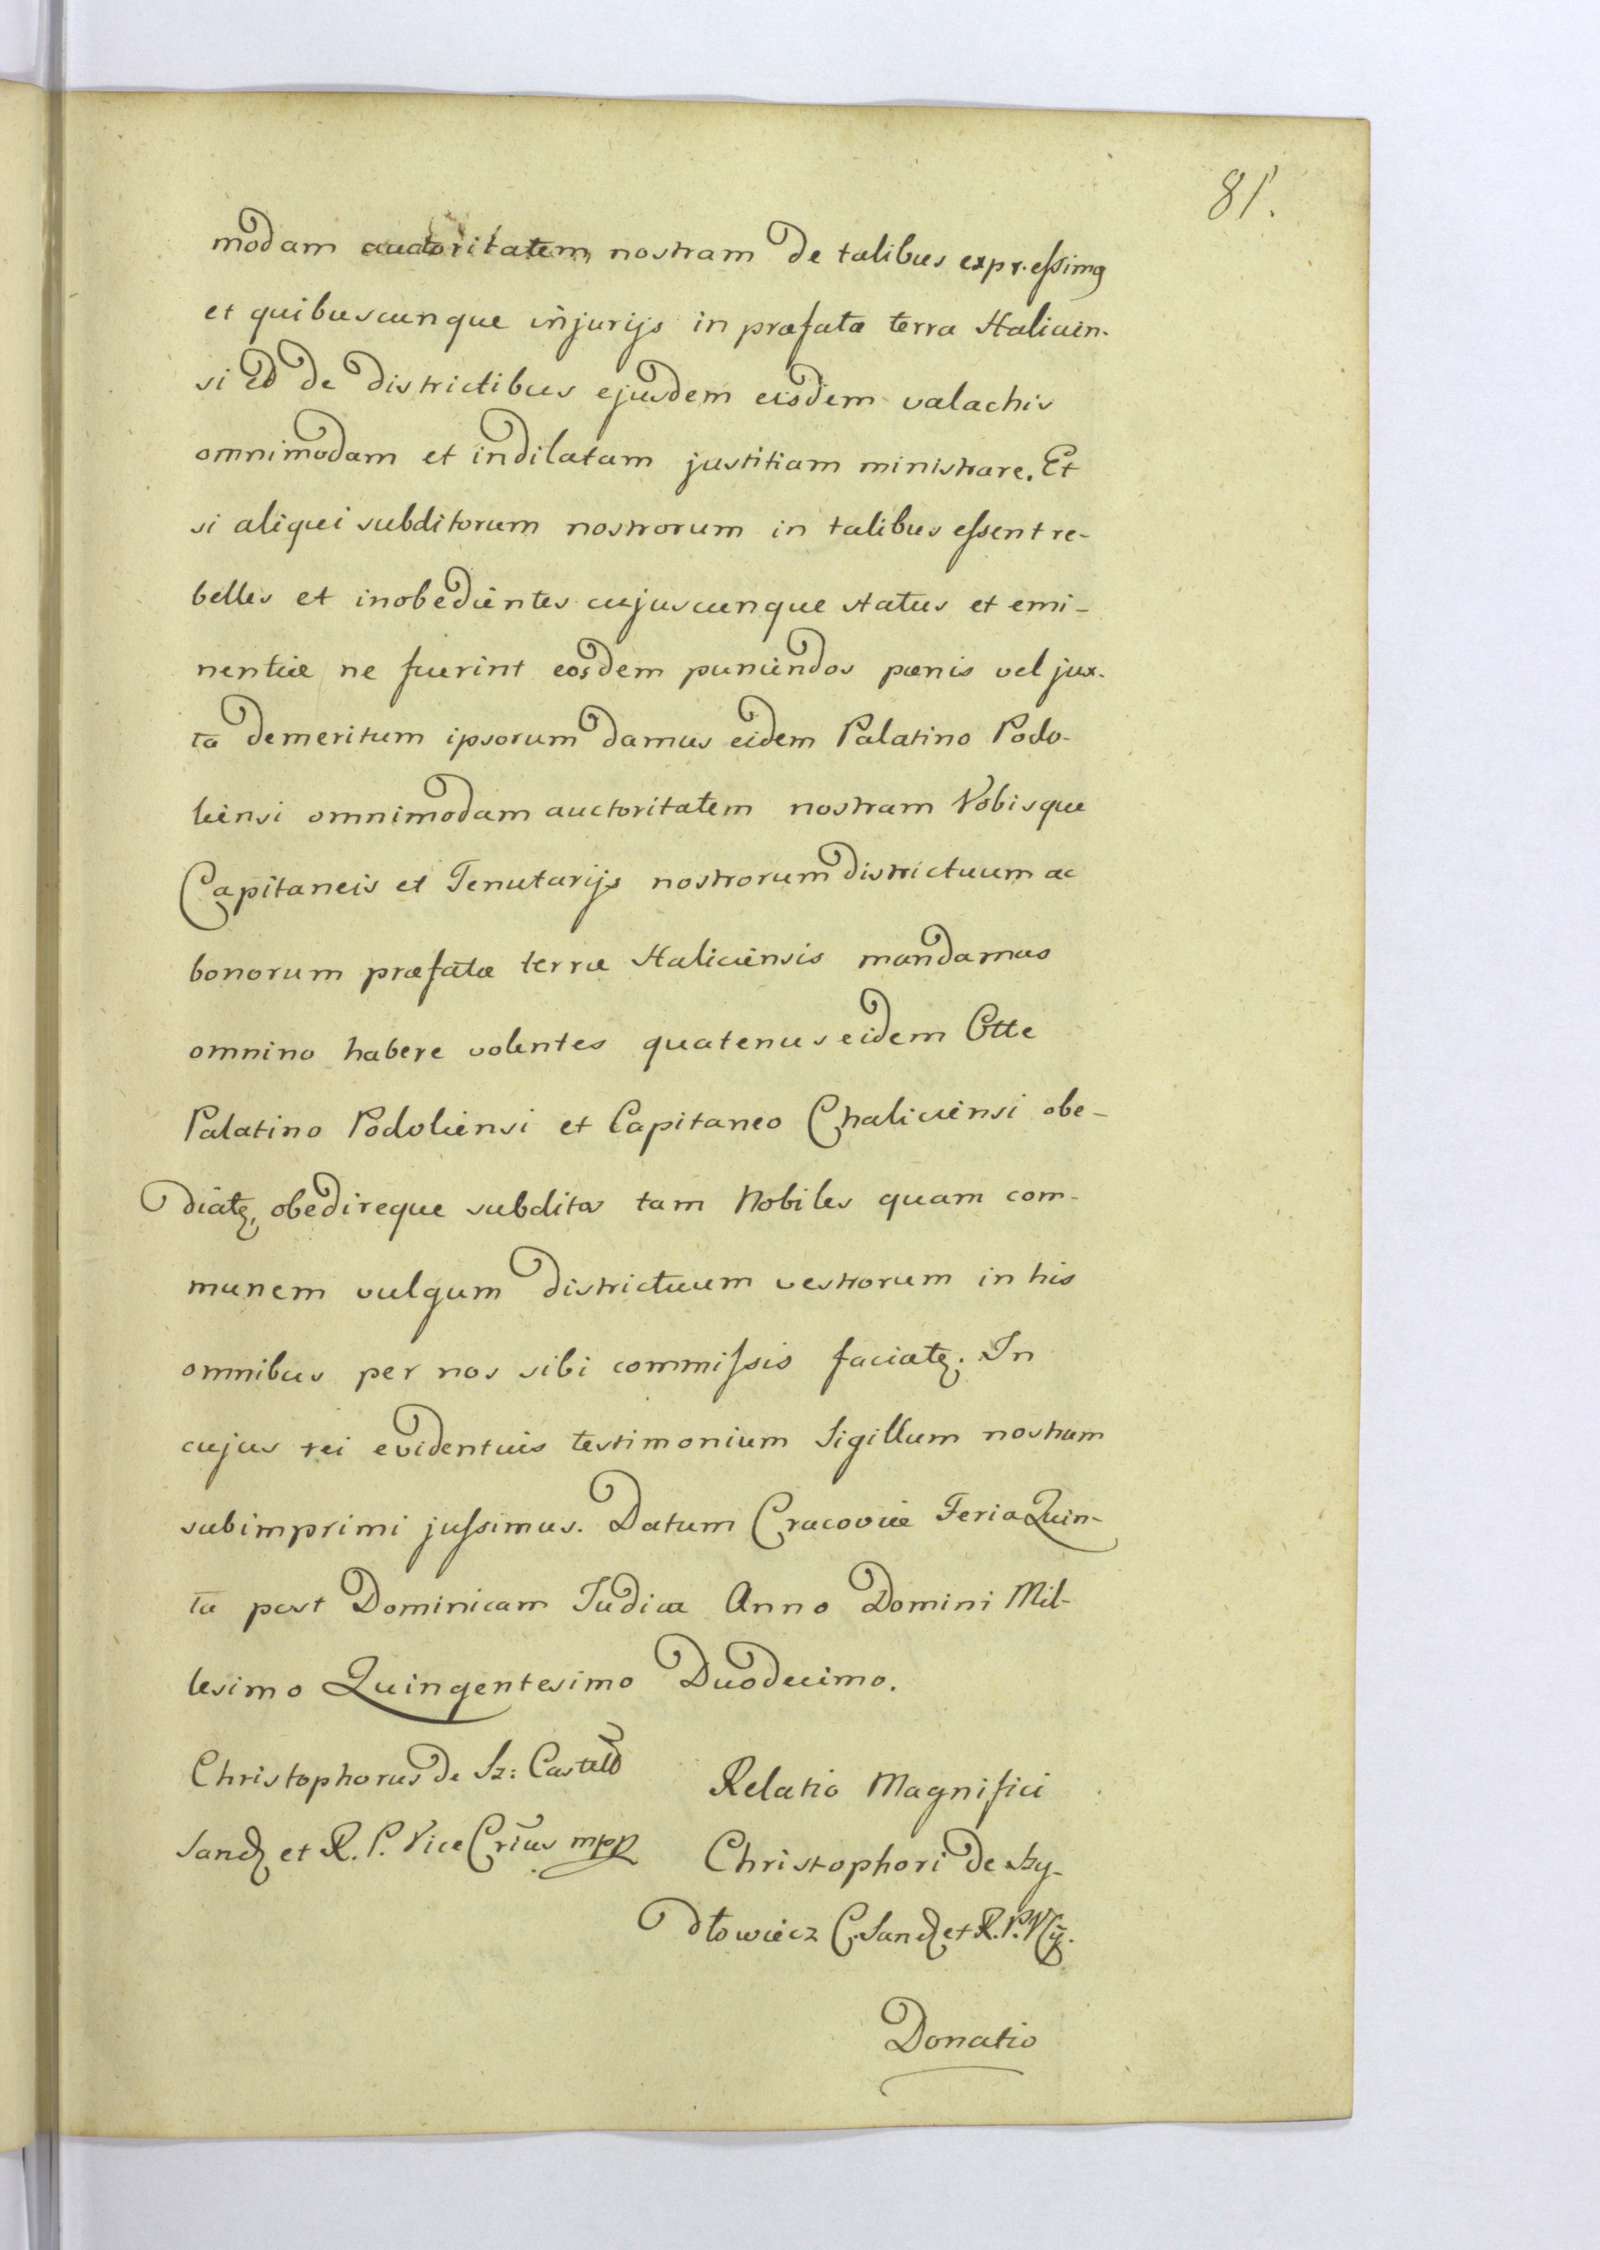 81.
modam auctoritatem nostram de talibus expressimq
et quibuscunque injurijs in præfata terra Halicien-
si ed de districtibus ejusdem eisdem valachis
omnimodam et indilatam justitiam ministrare. Et
si aliqui subditorum nostrorum in talibus essent re-
belles et inobedientes cujuscunque status et emi-
nentiæ ne fuerint eosdem puniendos pænis vel jux-
ta demeritum ipsorum damus eidem Palatino Podo-
liensi omnimodam auctoritatem nostram Vobisque
Capitaneis et Tenutarijs nostrorum districtuum ac
bonorum præfatæ terræ Haliciensis mandamus
omnino habere volentes quatenus eidem Otte
Palatino Podoliensi et Capitaneo Chaliciensi obe-
diatq, obedireque subditos tam Nobiles quam com-
munem vulgum districtuum vestrorum in his
omnibus per nos sibi commissis faciatq. In
cujus rei evidentius testimonium Sigillum nostrum
subimprimi jussimus. Datum Cracoviæ Feria Quin-
ta post Dominicam Judica Anno Domini Mil-
lesimo Quingentesimo Duodecimo.
Christophorus de Sz: Castell
Sand et R. P. Vice Crius mpp
Relatio Magnifici
Christophori de Szy-
dłowiecz C. Sand et R. P. V
Donatio